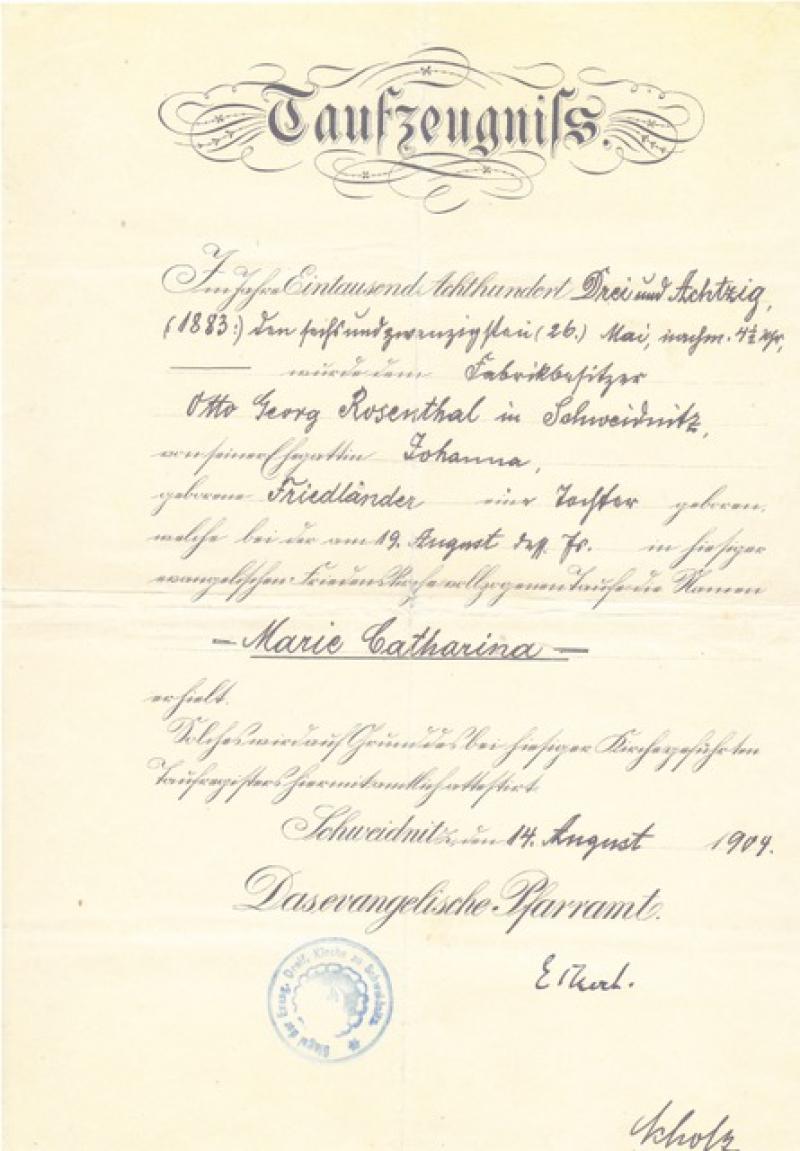 Taufzeugniſs.
Im Jahre Eintausend Achthundert Drei und Achtzig,
(1883:) den sechsundzwanzigsten (26.) Mai, nachm. 4½ Uhr,
wurde dem Fabrikbesitzer
Otto Georg Rosenthal in Schweidnitz,
von seiner Ehegattin Johanna,
geborene Friedländer eine Tochter geboren,
welche bei der am 19. August dess. Js. in hiesiger
evangelischen Friedens Kirche vollzogenen Taufe die Namen
- Marie Catharina -
erhielt.
Solches wird auf Grund des bei hiesiger Kirche geführten
Taufregisters hiermit amtlich attestirt.
Schweidnitz, den 14. August 1904.
Das evangelische Pfarramt.
Siegel der Evang. Dreif. Kirche zu Schweidnitz.
Scholz